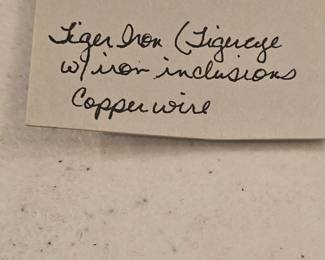 Tiger Iron (Tigereye
w/ iron inclusions
Copper wire